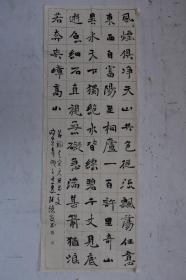 風煙俱净天山共色從流飄蕩任意
東西自富陽至桐廬一百許里奇山
異水天下獨絶水皆縹碧千丈見底
遊魚細石直視無礙急湍甚箭猛浪
若奔夾嶂高山